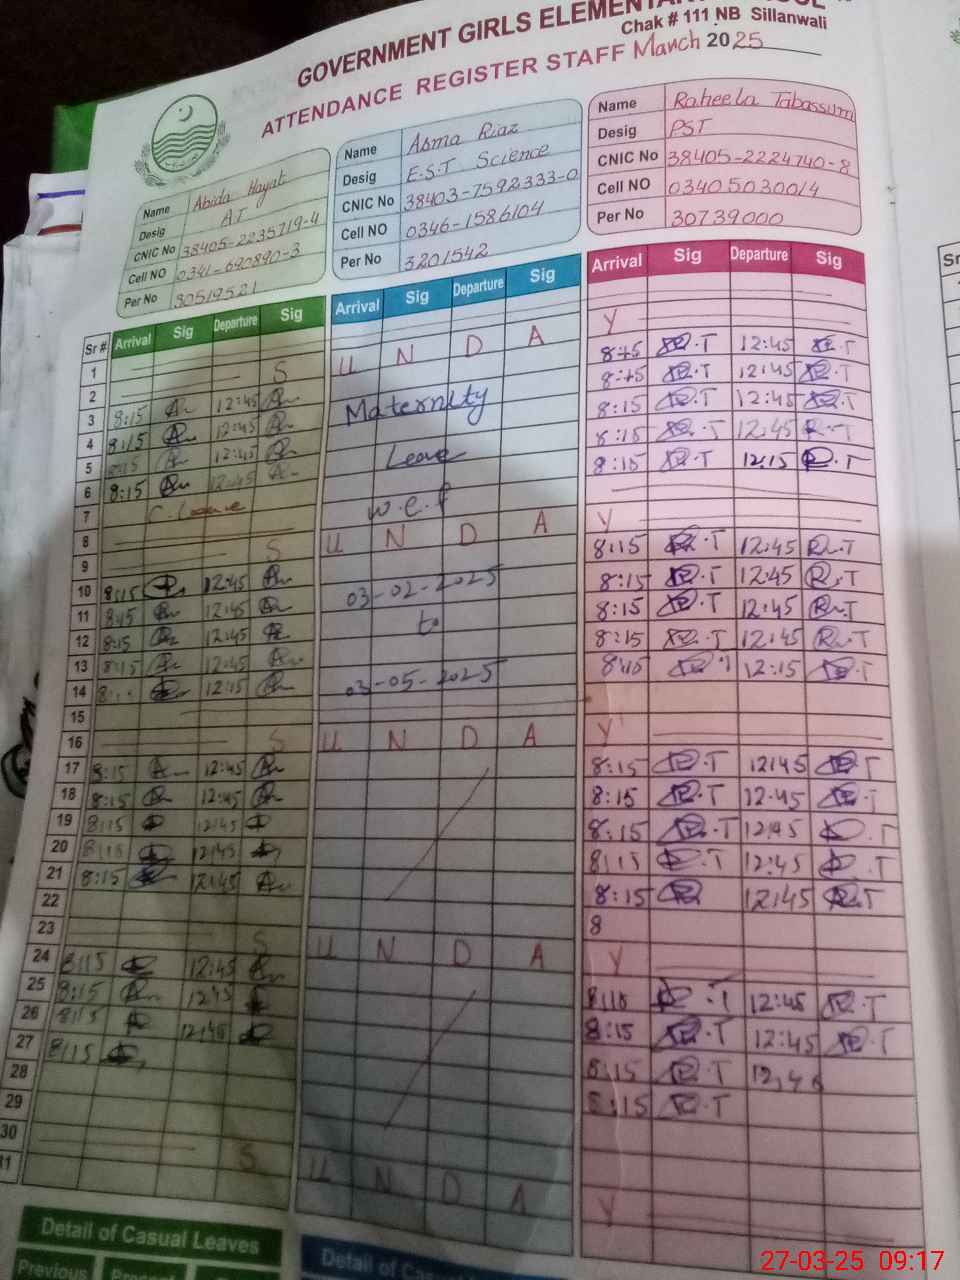 GOVERNMENT GIRLS ELEMENTARY
Chak # 111 NB Sillanwali
ATTENDANCE REGISTER STAFF March 2025
Name Abida Hayat
Desig AT
CNIC No 38405-2235719-4
Cell NO 0341-690890-3
Per No 30519521
Name Asma Riaz
Desig E.S.T Science
CNIC No 38403-7592333-0
Cell NO 0346-1586104
Per No 3201542
Name Raheela Tabassum
Desig PST
CNIC No 38405-2224740-8
Cell NO 03405030014
Per No 30739000
Sr # Arrival Sig Departure Sig Arrival Sig Departure Sig Arrival Sig Departure Sig
1
2 S U N D A Y
3 8:15 12:45 Maternity 8:15 R.T 12:45 R.T
4 8:15 12:45 8:15 R.T 12:45 R.T
5 8:15 12:45 Leave 8:15 R.T 12:45 R.T
6 8:15 12:45 8:15 R.T 12:45 R.T
7 C. Leave w.e.f 8:15 R.T 12:15 R.T
8
9 S U N D A Y
10 8:15 12:45 8:15 R.T 12:45 R.T
11 8:15 12:45 03-02-2025 8:15 R.T 12:45 R.T
12 8:15 12:45 to 8:15 R.T 12:45 R.T
13 8:15 12:45 8:15 R.T 12:45 R.T
14 12:15 03-05-2025 8:15 R.T 12:15 R.T
15
16 S U N D A Y
17 8:15 12:45 8:15 R.T 12:45 R.T
18 8:15 12:45 8:15 R.T 12:45 R.T
19 8:15 12:45 8:15 R.T 12:45 R.T
20 8:15 12:45 8:15 R.T 12:45 R.T
21 8:15 12:45 8:15 R 12:45 R.T
22 8
23 S U N D A Y
24 8:15 12:45 8:15 R.T 12:45 R.T
25 8:15 12:45 8:15 R.T 12:45 R.T
26 8:15 12:45 8:15 R.T 12:45
27 8:15 8:15 R.T
28
29
30 S U N D A Y
31
Detail of Casual Leaves
Detail of Cas
Previous
27-03-25 09:17